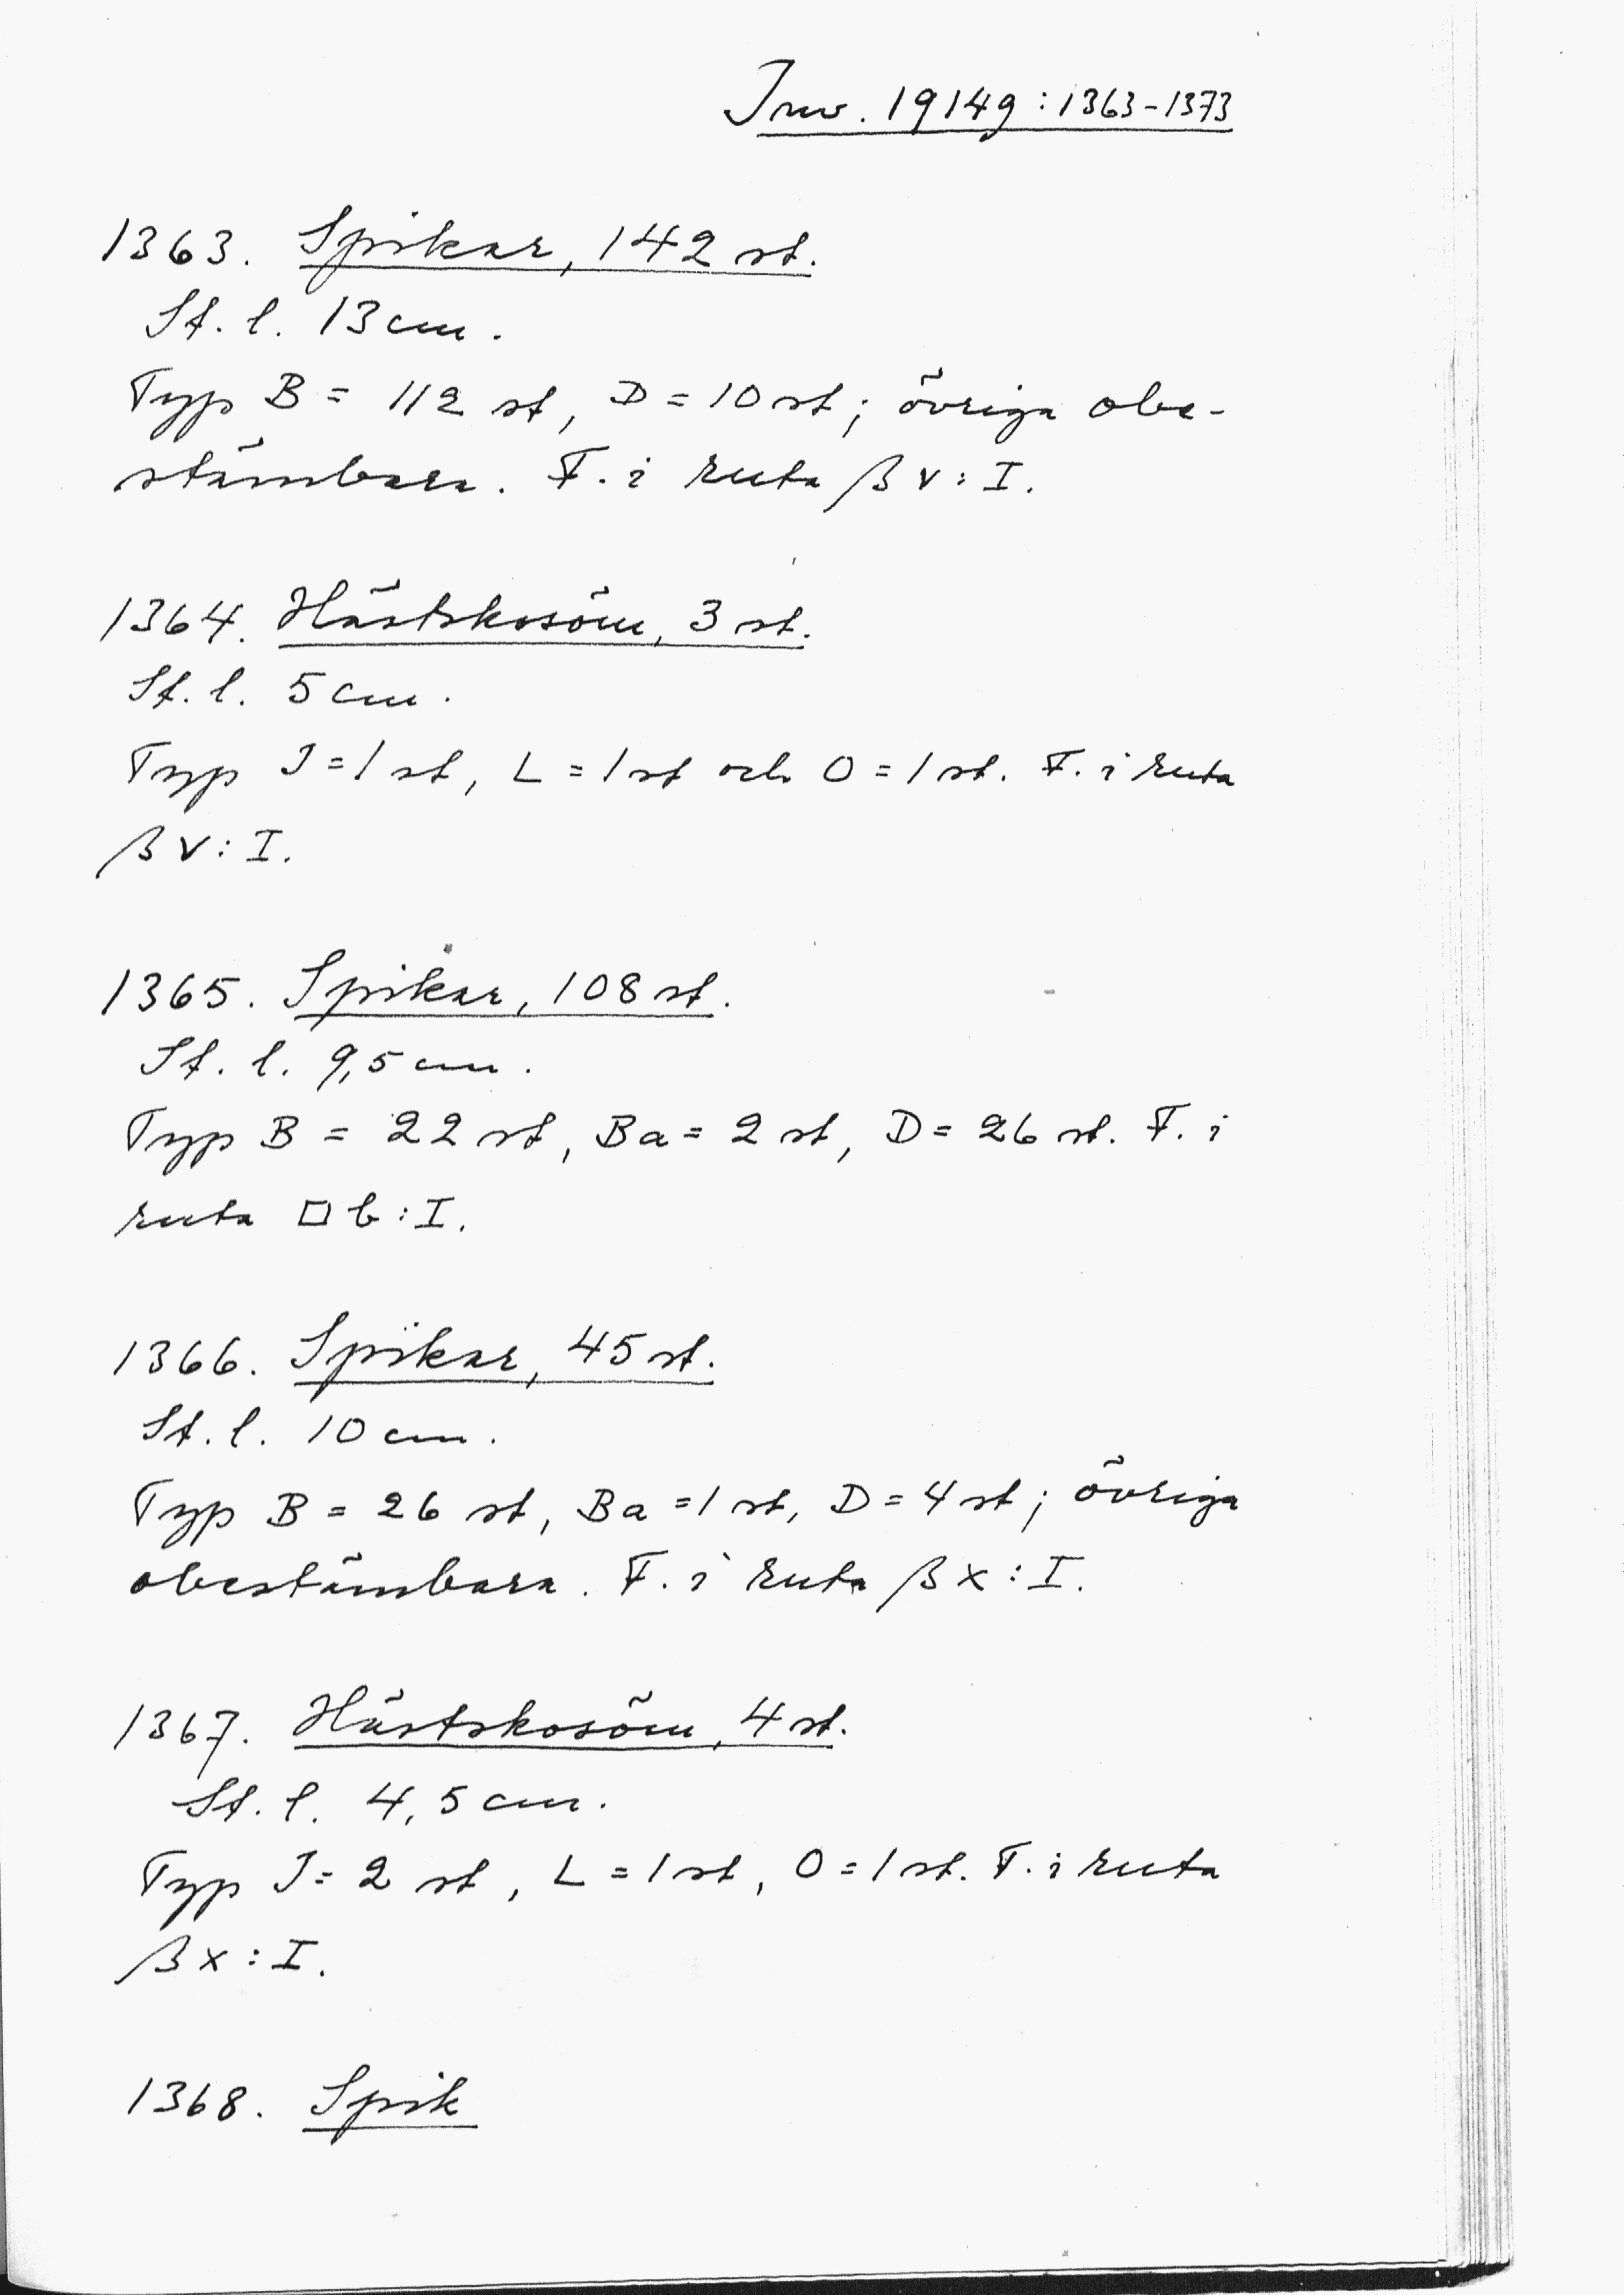 Inv. 19149:1363-1373
1363. Spikar, 142 st.
St. l. 13 cm.
Typ B = 112 st, D = 10 st; övriga obe-
stämbara. F. i ruta βv:I.
1364. Hästskosöm, 3 st.
St. l. 5 cm.
Typ J = 1 st, L = 1 st och O = 1 st. F. i ruta
βv:I.
1365. Spikar, 108 st.
St. l. 9,5 cm.
Typ B = 22 st, Ba = 2 st, D = 26 st. F. i
ruta □b:I.
1366. Spikar, 45 st.
St. l. 10 cm.
Typ B = 26 st, Ba = 1 st, D = 4 st; övriga
obestämbara. F. i ruta βx:I.
1367. Hästskosöm, 4 st.
St. l. 4,5 cm.
Typ J = 2 st, L = 1 st, O = 1 st. F. i ruta
βx:I.
1368. Spik